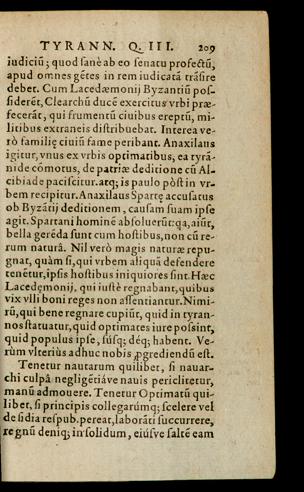 TYRANN. Q. III. 209
iudiciū; quod sanè ab eo senatu profectū,
apud omnes gētes in rem iudicatā trāsire
debet. Cum Lacedæmonij Byzantiū pos-
siderēt, Clearchū ducē exercitus vrbi præ-
fecerāt, qui frumentū ciuibus ereptū, mi-
litibus extraneis distribuebat. Interea ve-
rò familię ciuiū fame peribant. Anaxilaus
igitur, vnus ex vrbis optimatibus, ea tyrā-
nide cōmotus, de patriæ deditione cū Al-
cibiade paciscitur. atq; is paulo pòst in vr-
bem recipitur. Anaxilaus Spartę accusatus
ob Byzātij deditionem, causam suam ipse
agit. Spartani hominē absoluerūt: qa, aiūt,
bella gerēda sunt cum hostibus, non cū re-
rum naturâ. Nil verò magis naturæ repu-
gnat, quàm si, qui vrbem aliquā defendere
tenētur, ipsis hostibus iniquiores sint. Hæc
Lacedęmonij, qui iustè regnabant, quibus
vix vlli boni reges non assentiantur. Nimi-
rū, qui bene regnare cupiūt, quid in tyran-
nos statuatur, quid optimates iure possint,
quid populus ipse, susq; déq; habent. Ve-
rùm vlterius adhuc nobis ꝓgrediendū est.
Tenetur nautarum quilibet, si nauar-
chi culpâ negligētiáve nauis periclitetur,
manū admouere. Tenetur Optimatū qui-
libet, si principis collegarúmq; scelere vel
desidia respub. pereat, laborāti succurrere,
regnū deniq; in solidum, eiúsve saltē eam